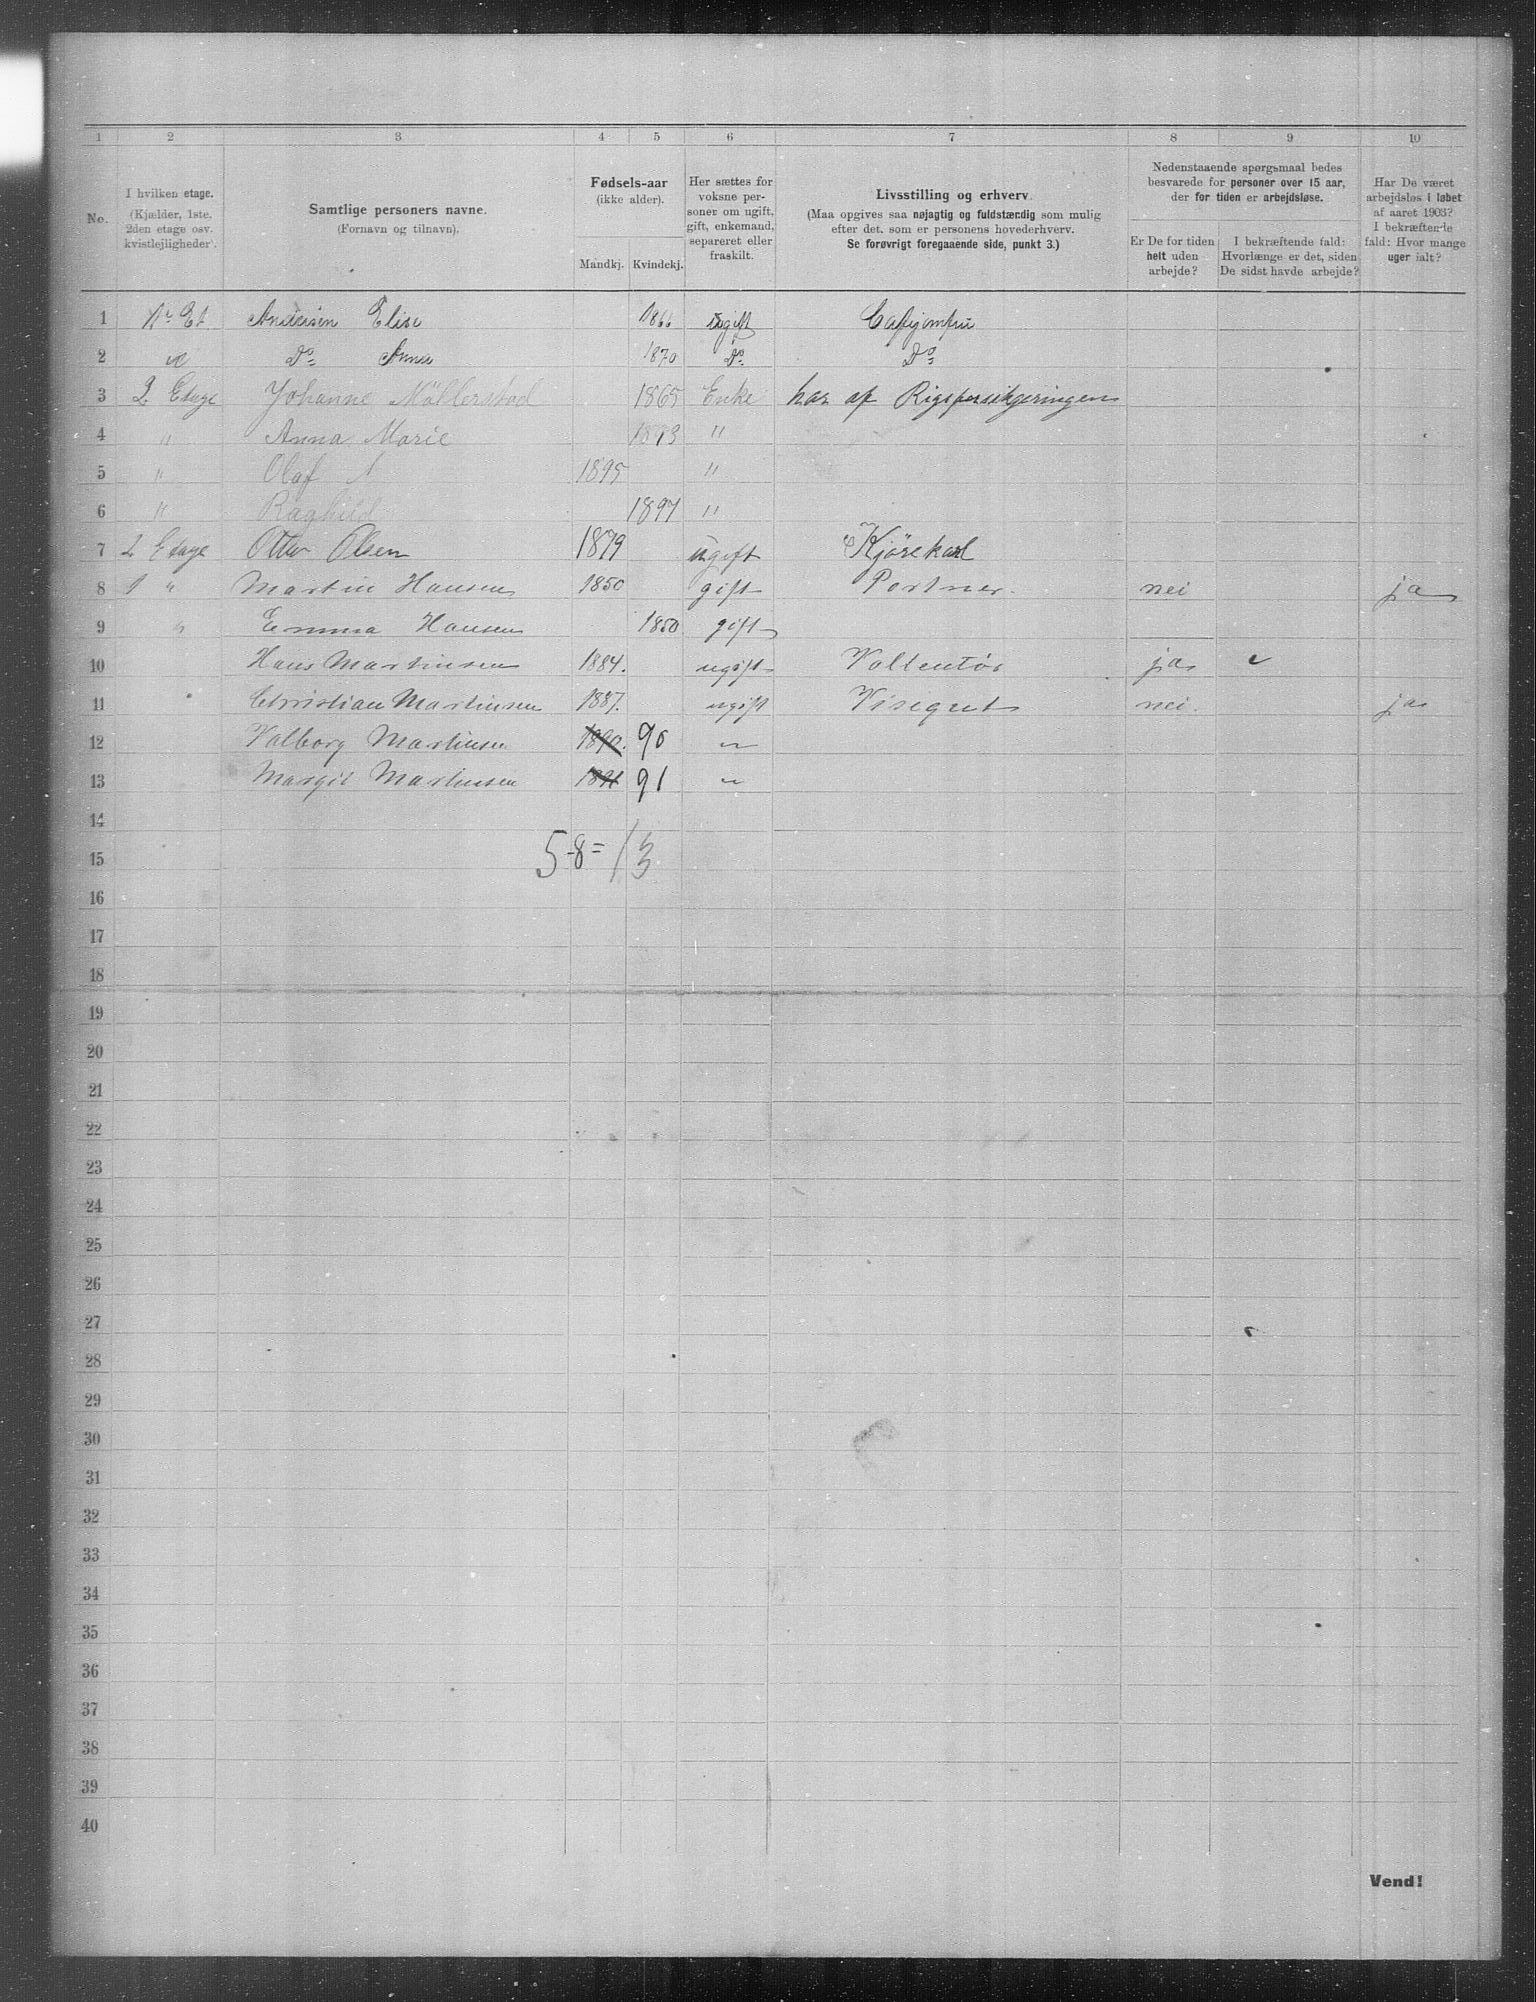 1 2 3 4 5 6 7 8 9 10
No.
I hvilken etage.
(Kjælder, 1ste,
2den etage osv.
kvistlejligheder).
Samtlige personers navne.
(Fornavn og tilnavn).
Fødsels-aar
(ikke alder).
Mandkj. Kvindekj.
Her sættes for
voksne per-
soner om ugift,
gift, enkemand,
separeret eller
fraskilt.
Livsstilling og erhverv.
(Maa opgives saa nøjagtig og fuldstændig som mulig
efter det, som er personens hovederhverv.
Se forøvrigt foregaaende side, punkt 3.)
Nedenstaaende spørgsmaal bedes
besvarede for personer over 15 aar,
der for tiden er arbejdsløse.
Er De for tiden
helt uden
arbejde?
I bekræftende fald:
Hvorlænge er det, siden
De sidst havde arbejde?
Har De været
arbejdsløs i løbet
af aaret 1903?
I bekræftende
fald: Hvor mange
uger ialt?
1 Et Andersen Elise 1866 ugift Cafejomfru
2 Do Anna 1870 Do Do
3 2 Etage Johanne Möllerstad 1865 Enke har af Rigsforsikjeringen
4 " Anna Marie "
5 " Olaf 1895 "
6 " Raghild 1897 "
7 2 Etage Otto Olsen 1879 ugift Kjørekarl
8 1 " Martin Hansen 1850 gift Portner. nei ja
9 " Emma Hansen 1850 gift
10 Hans Martinsen 1884. ugift ja
11 " Christian Martinsen 1887. ugift Visergut nei. ja
12 Valborg Martinsen 1890. 90 "
13 Margit Martinsen 1891 91 "
14
5-8=13
15
16
17
18
19
20
21
22
23
24
25
26
27
28
29
30
31
32
33
34
35
36
37
38
39
40
Vend!